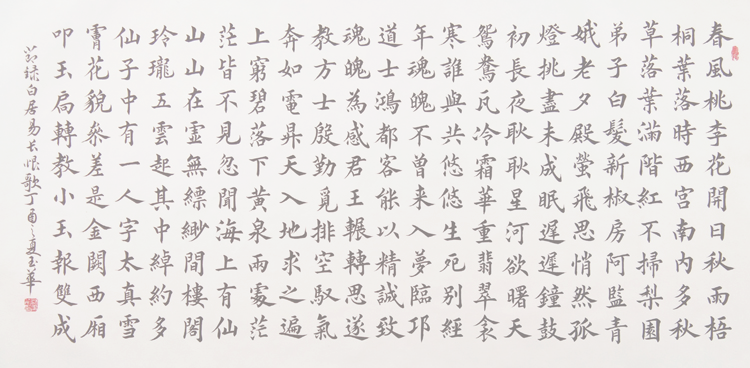 春風桃李花開日秋雨梧
桐葉落時西宮南内多秋
草落葉滿階紅不掃梨園
弟子白髮新椒房阿監青
娥老夕殿螢飛思悄然孤
燈挑盡未成眠遲遲鐘鼓
初長夜耿耿星河欲曙天
鴛鴦瓦冷霜華重翡翠衾
寒誰與共悠悠生死别經
年魂魄不曾来入夢臨邛
道士鴻都客能以精誠致
魂魄為感君王輾轉思遂
教方士殷勤覓排空馭氣
奔如電昇天入地求之遍
上窮碧落下黄泉兩處茫
茫皆不見忽聞海上有仙
山山在虛無縹緲間樓閣
玲瓏五雲起其中綽約多
仙子中有一人字太真雪
膚花貌參差是金闕西廂
叩玉扃轉教小玉報雙成
節録白居易長恨歌丁酉之夏玉華